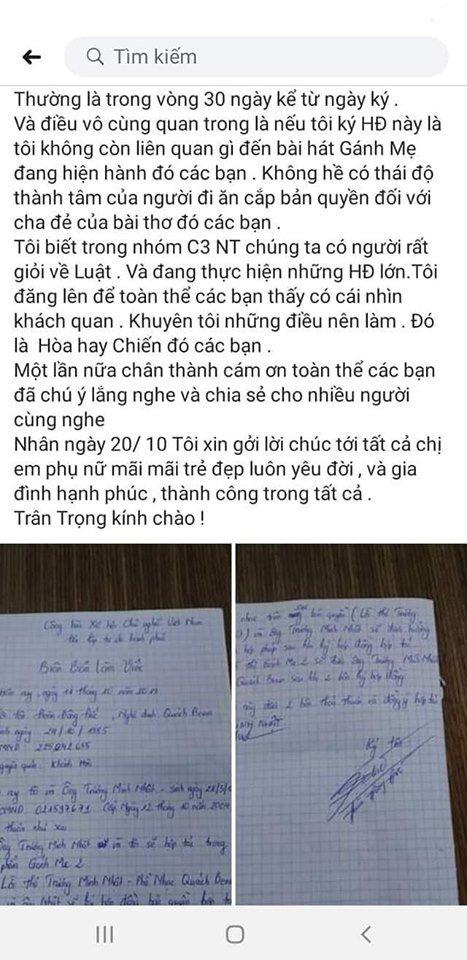 Tìm kiếm
Thường là trong vòng 30 ngày kể từ ngày ký .
Và điều vô cùng quan trong là nếu tôi ký HĐ này là
tôi không còn liên quan gì đến bài hát Gánh Mẹ
đang hiện hành đó các bạn . Không hề có thái độ
thành tâm của người đi ăn cắp bản quyền đối với
cha đẻ của bài thơ đó các bạn .
Tôi biết trong nhóm C3 NT chúng ta có người rất
giỏi về Luật . Và đang thực hiện những HĐ lớn.Tôi
đăng lên để toàn thể các bạn thấy có cái nhìn
khách quan . Khuyên tôi những điều nên làm . Đó
là Hòa hay Chiến đó các bạn .
Một lần nữa chân thành cám ơn toàn thể các bạn
đã chú ý lắng nghe và chia sẻ cho nhiều người
cùng nghe
Nhân ngày 20/ 10 Tôi xin gởi lời chúc tới tất cả chị
em phụ nữ mãi mãi trẻ đẹp luôn yêu đời , và gia
đình hạnh phúc , thành công trong tất cả .
Trân Trọng kính chào !
Cộng hòa Xã hội Chủ nghĩa Việt Nam
Biên Bản Làm Việc
ngày 11 tháng 10 năm 2019
Nghệ danh Quách Beem
ngày 24/10/1985
225242655
Khánh Hòa
nay tôi và Ông Trương Minh Nhật - sinh ngày
CMND 021597671 Cấp Ngày 12 tháng 10 năm 2004
thuận như sau
Ông Trương Minh Nhật và tôi sẽ hợp tác trong
phẩm Gánh Mẹ 2
Lời thơ Trương Minh Nhật - Phổ Nhạc Quách Beem
bản quyền
và ông Trương Minh Nhật sẽ
sau khi ký hợp đồng hợp tác
Gánh Mẹ 2
Quách Beem sau khi 2 bên ký hợp đồng
2 bên thỏa thuận và đồng ý hợp tác
Ký tên